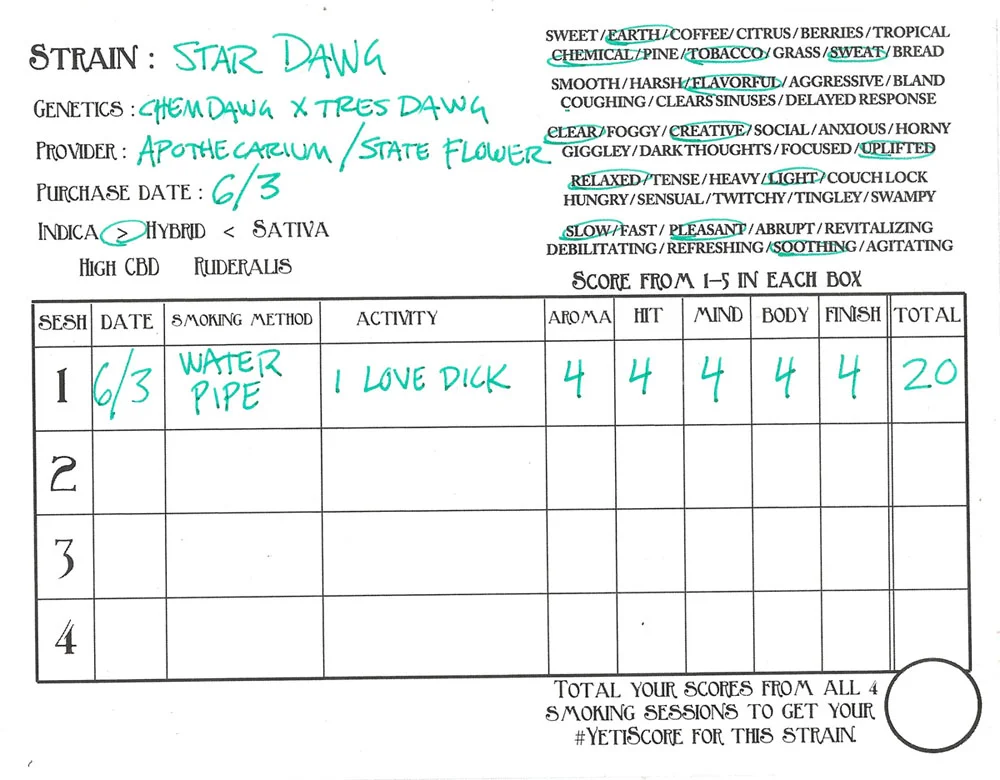 STRAIN : STAR DAWG
GENETICS : CHEMDAWG X TRES DAWG
PROVIDER : APOTHECARIUM / STATE FLOWER
PURCHASE DATE : 6/3
INDICA > HYBRID < SATIVA
HIGH CBD RUDERALIS
SWEET / EARTH / COFFEE / CITRUS / BERRIES / TROPICAL
CHEMICAL / PINE / TOBACCO / GRASS / SWEAT / BREAD
SMOOTH / HARSH / FLAVORFUL / AGGRESSIVE / BLAND
COUGHING / CLEARS SINUSES / DELAYED RESPONSE
CLEAR / FOGGY / CREATIVE / SOCIAL / ANXIOUS / HORNY
GIGGLEY / DARK THOUGHTS / FOCUSED / UPLIFTED
RELAXED / TENSE / HEAVY / LIGHT / COUCH LOCK
HUNGRY / SENSUAL / TWITCHY / TINGLEY / SWAMPY
SLOW / FAST / PLEASANT / ABRUPT / REVITALIZING
DEBILITATING / REFRESHING / SOOTHING / AGITATING
SCORE FROM 1-5 IN EACH BOX
SESH DATE SMOKING METHOD ACTIVITY AROMA HIT MIND BODY FINISH TOTAL
1 6/3 WATER PIPE I LOVE DICK 4 4 4 4 4 20
2
3
4
TOTAL YOUR SCORES FROM ALL 4
SMOKING SESSIONS TO GET YOUR
#YETISCORE FOR THIS STRAIN.